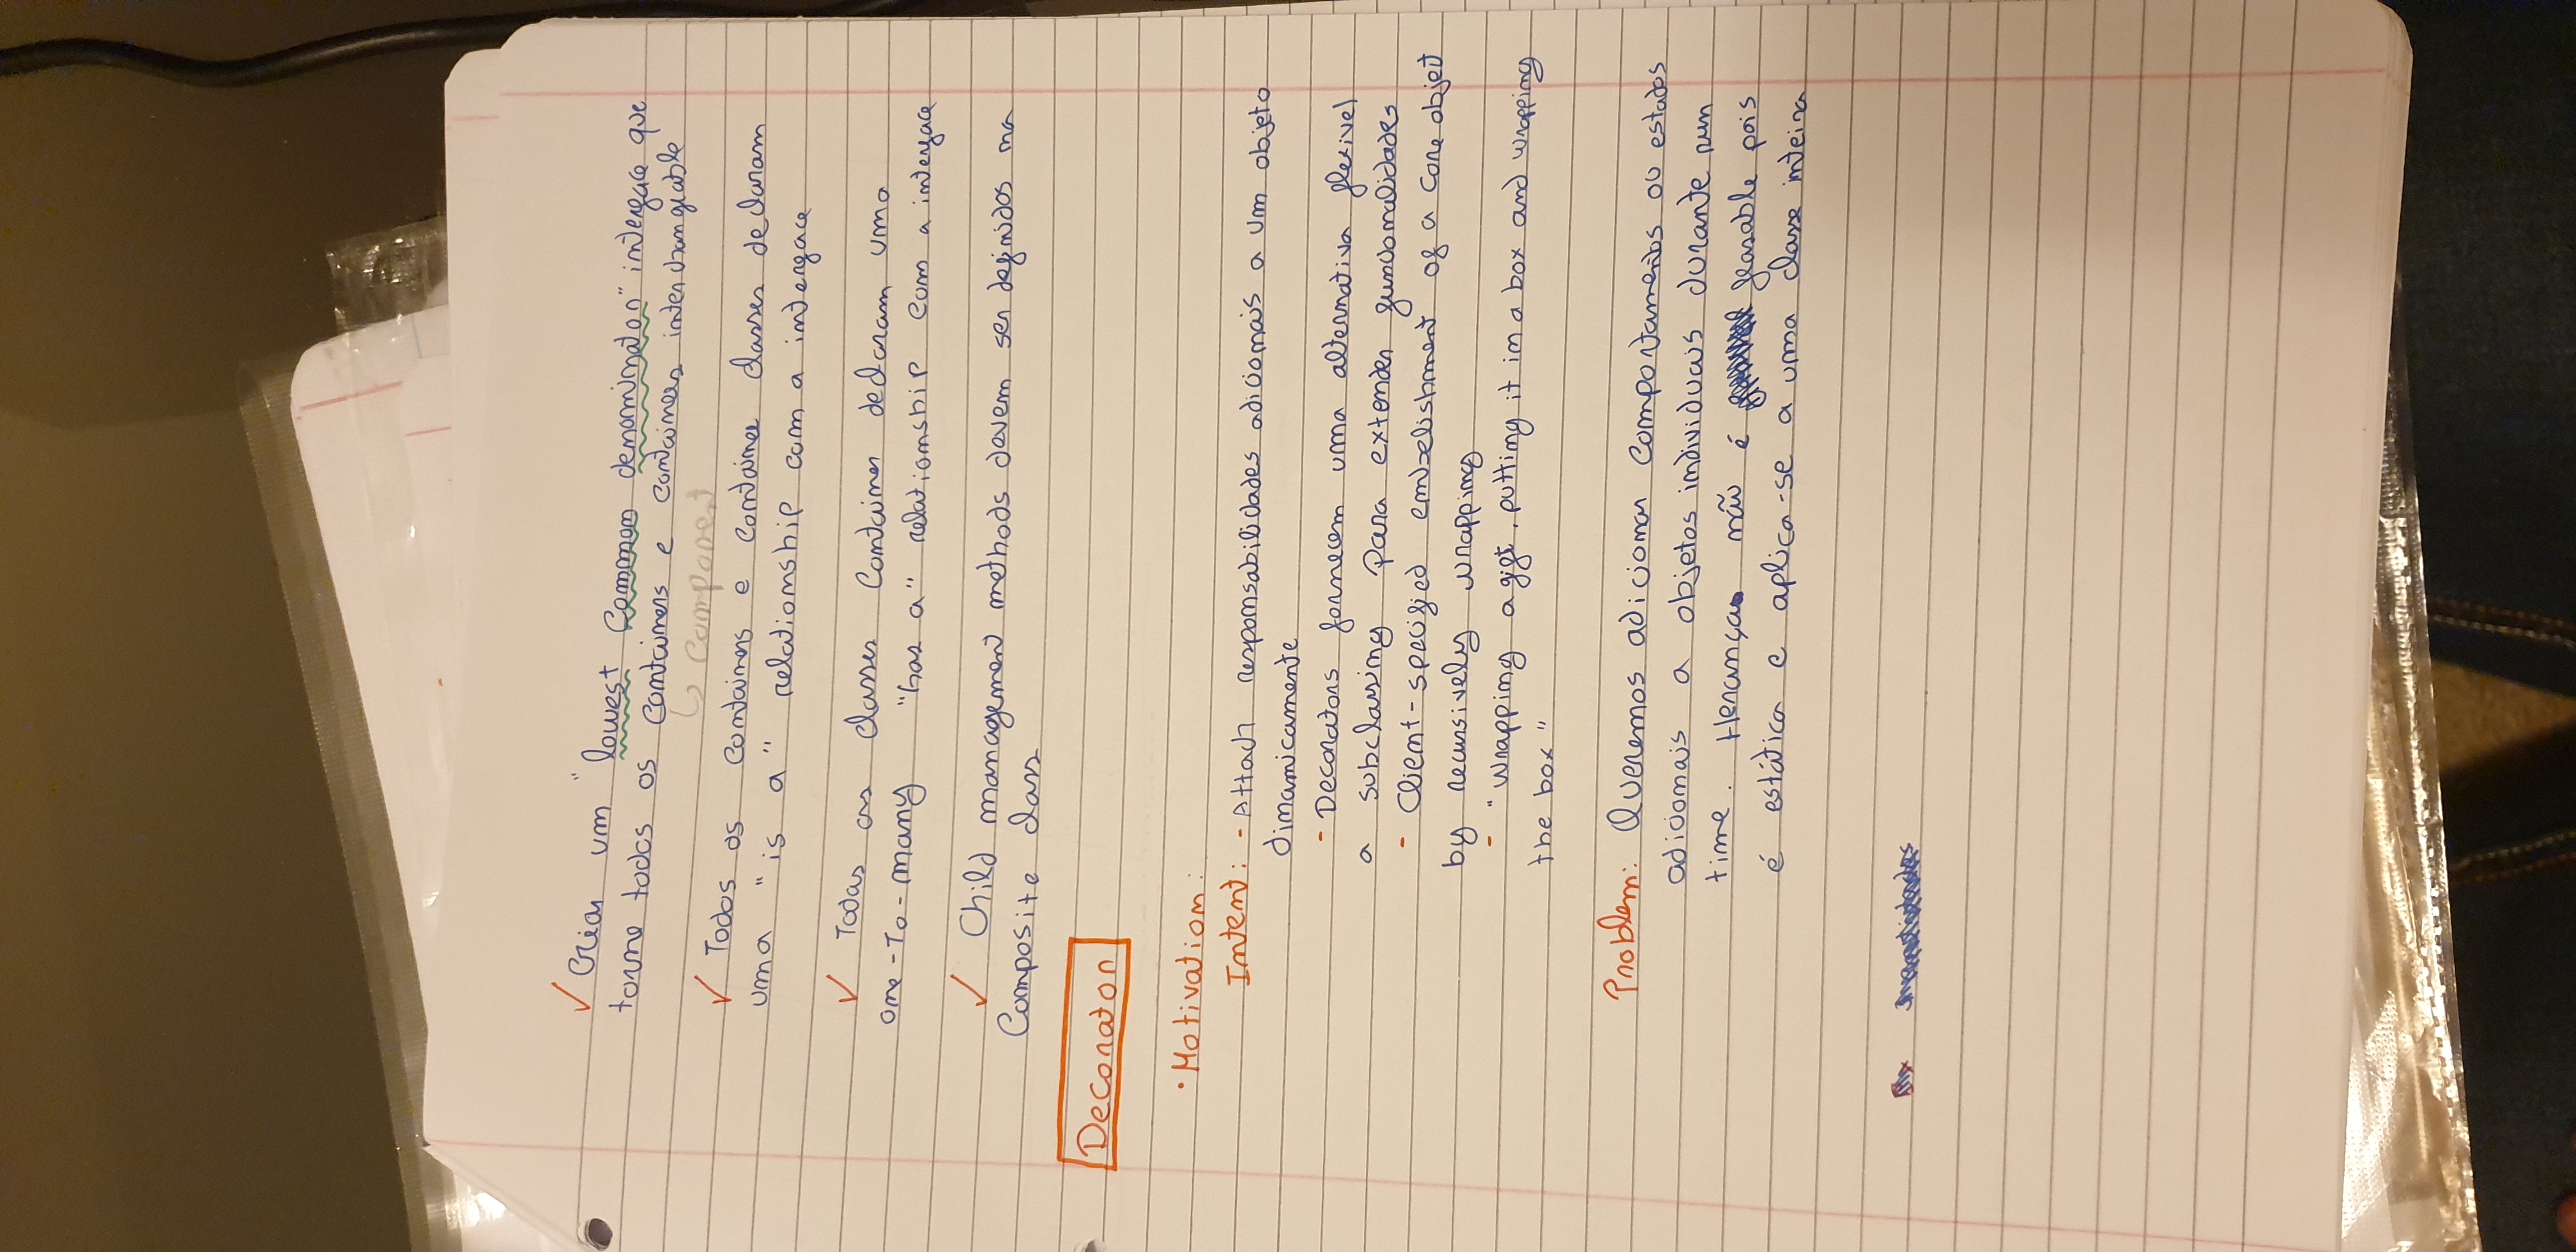 ✓ Criar um "lowest common denominator" interface que
torne todos os containers e containers interchangeable
↳ Component
✓ Todos os containers e container classes declaram
uma "is a" relationship com a interface
✓ Todas as classes Container declaram uma
one-To-many "has a" relationship com a interface
✓ Child management methods devem ser definidos na
Composite class
Decorator
• Motivation:
Intent: - Attach responsabilidades adicionais a um objeto
dinamicamente
- Decorators fornecem uma alternativa flexivel
a subclassing para extender funcionalidades
- Client-specified embelishment of a core object
by recursively wrapping
- "Wrapping a gift, putting it in a box and wrapping
the box"
Problem: Queremos adicionar comportamentos ou estados
adicionais a objetos individuais durante run
time. Herança não é feasable pois
é estática e aplica-se a uma classe inteira